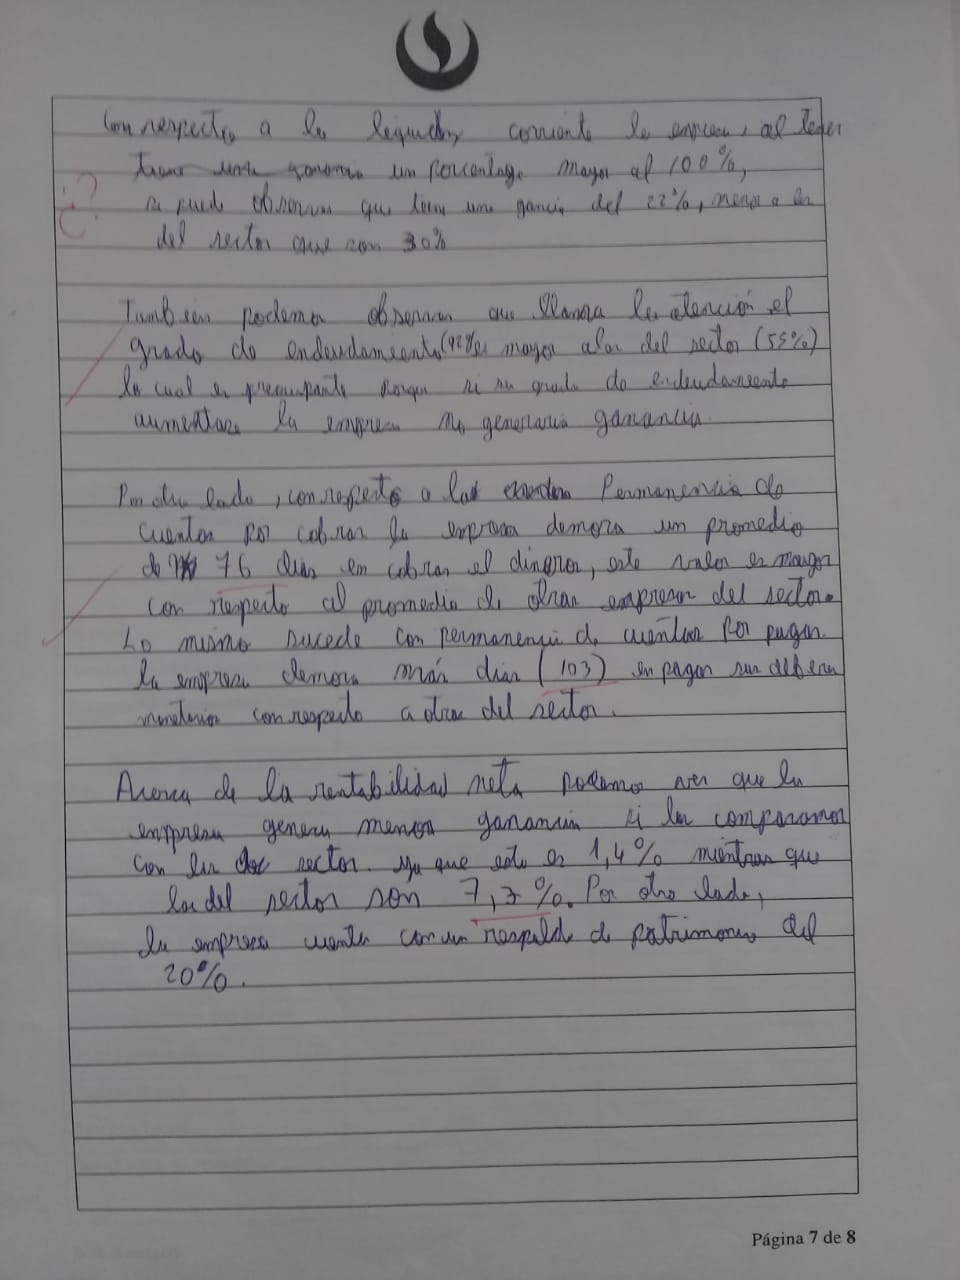 Con respecto a la liquidez corriente la empresa, al tener
tiene una ganancia un porcentage mayor al 100%,
¿?
se puede observar que tiene una gancia del 22%, menor a la
del sector que son 30%
También podemos observar que llama la atención el
grado de endeudamiento (92%) es mayor a los del sector (55%)
lo cual es preocupante porque si su grado de endeudamiento
aumentase la empresa no generaria ganancias.
Por otro lado, con respecto a las Permanencia de
cuentas por cobrar la empresa demora un promedio
de 76 dias en cobrar el dinero, este valor es mayor
con respecto al promedio de otras empresas del sector.
Lo mismo sucede con permanencia de cuentas por pagar.
la empresa demora más dias (103) en pagar sus deberes
monetarios con respecto a otras del sector.
Acerca de la rentabilidad neta podemos ver que la
empresa genera menos ganancia si la comparamos
con las del sector. ya que este es 1,4% mientras que
las del sector son 7,3%. Por otro lado,
la empresa cuenta con un respaldo de patrimonio del
20%.
Página 7 de 8